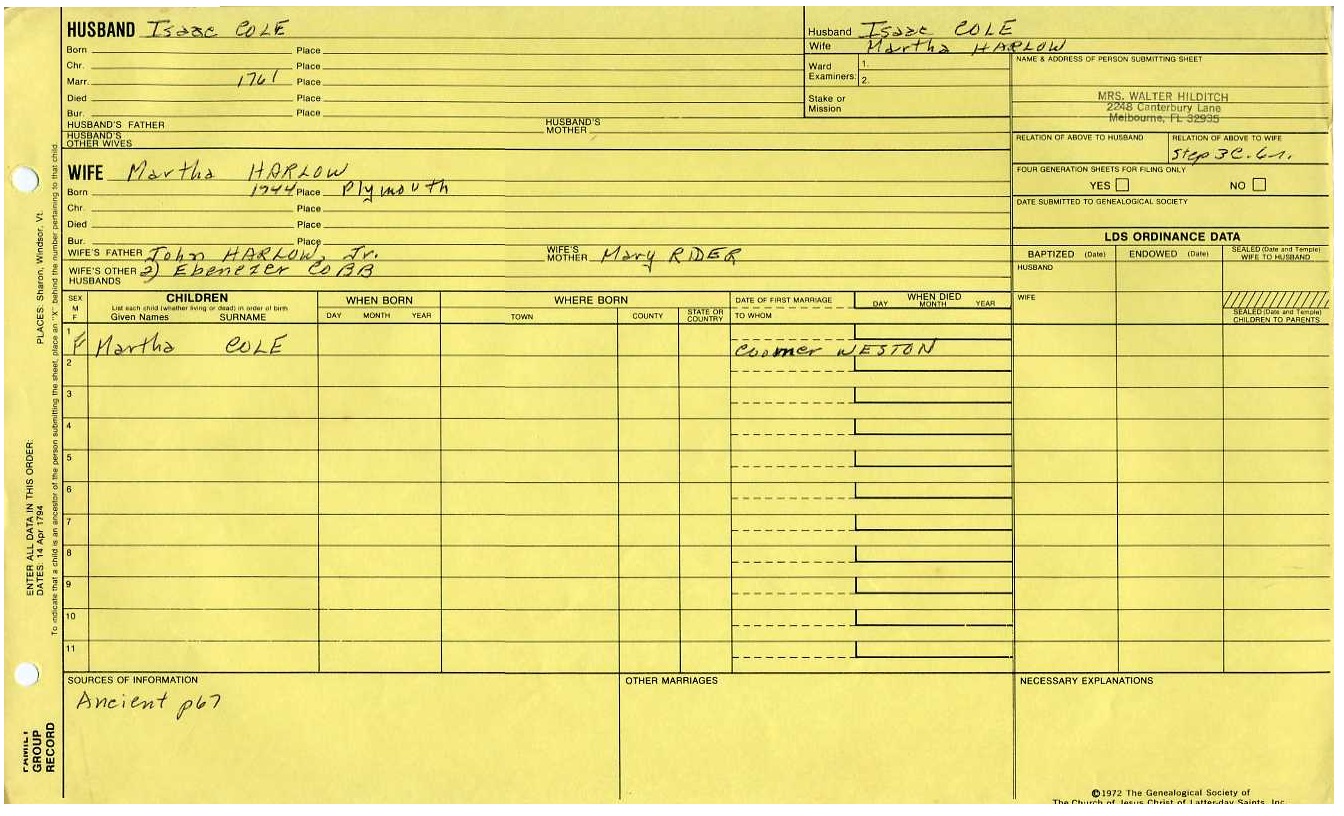 HUSBAND Isaac COLE
Born Place
Chr. Place
Marr. 1761 Place
Died Place
Bur. Place
HUSBAND'S FATHER HUSBAND'S MOTHER
HUSBAND'S OTHER WIVES
WIFE Martha HARLOW
Born 1744 Place Plymouth
Chr. Place
Died Place
Bur. Place
WIFE'S FATHER John HARLOW, Jr. WIFE'S MOTHER Mary RIDER
WIFE'S OTHER HUSBANDS 2) Ebenezer COBB
Husband Isaac COLE
Wife Martha HARLOW
Ward Examiners: 1.
2.
Stake or Mission
NAME & ADDRESS OF PERSON SUBMITTING SHEET
MRS. WALTER HILDITCH
2248 Canterbury Lane
Melbourne, FL 32935
RELATION OF ABOVE TO HUSBAND RELATION OF ABOVE TO WIFE
Step 3C. 6r.
FOUR GENERATION SHEETS FOR FILING ONLY
YES NO
DATE SUBMITTED TO GENEALOGICAL SOCIETY
LDS ORDINANCE DATA
BAPTIZED (Date) ENDOWED (Date) SEALED (Date and Temple) WIFE TO HUSBAND
HUSBAND
WIFE
SEALED (Date and Temple) CHILDREN TO PARENTS
SEX M F CHILDREN WHEN BORN WHERE BORN DATE OF FIRST MARRIAGE WHEN DIED
List each child (whether living or dead) in order of birth
Given Names SURNAME DAY MONTH YEAR TOWN COUNTY STATE OR COUNTRY TO WHOM DAY MONTH YEAR
1 F Martha COLE Coomer WESTON
2
3
4
5
6
7
8
9
10
11
SOURCES OF INFORMATION OTHER MARRIAGES NECESSARY EXPLANATIONS
Ancient p67
©1972 The Genealogical Society of
The Church of Jesus Christ of Latter-day Saints, Inc.
PLACES: Sharon, Windsor, Vt.
ENTER ALL DATA IN THIS ORDER:
DATES: 14 Apr 1794
To indicate that a child is an ancestor of the person submitting the sheet, place an "X" behind the number pertaining to that child.
FAMILY GROUP RECORD